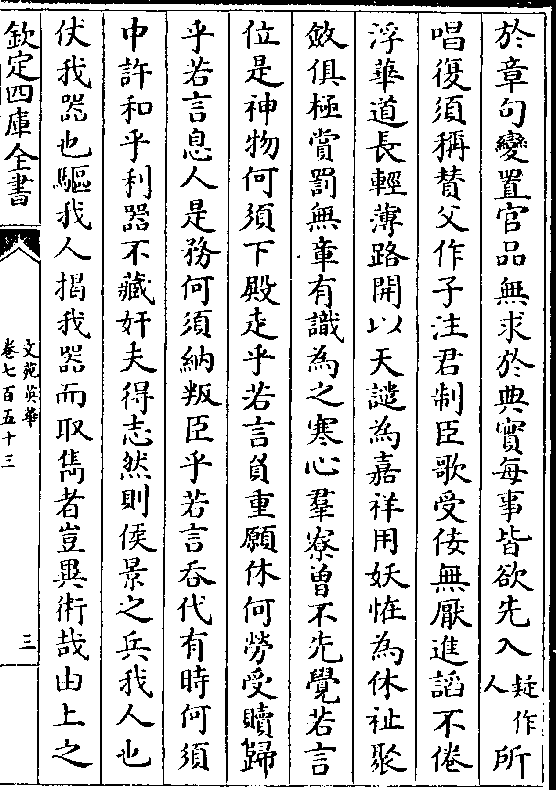 於章句變置官品無求於典實每事皆欲先入疑作人所
唱復須稱賛父作子注君制臣歌受佞無厭進諂不倦
浮華道長輕薄路開以天譴為嘉祥用妖恠為休祉聚
斂俱極賞罰無章有識為之寒心羣寮曽不先覺若言
位是神物何須下殿走乎若言負重願休何勞受贖歸
乎若言息人是務何須納叛臣乎若言吞代有時何須
中許和乎利器不藏奸夫得志然則侯景之兵我人也
仗我器也驅我人揭我器而取雋者豈異術哉由上之
欽定四庫全書
文苑英華
卷七百五十三
三